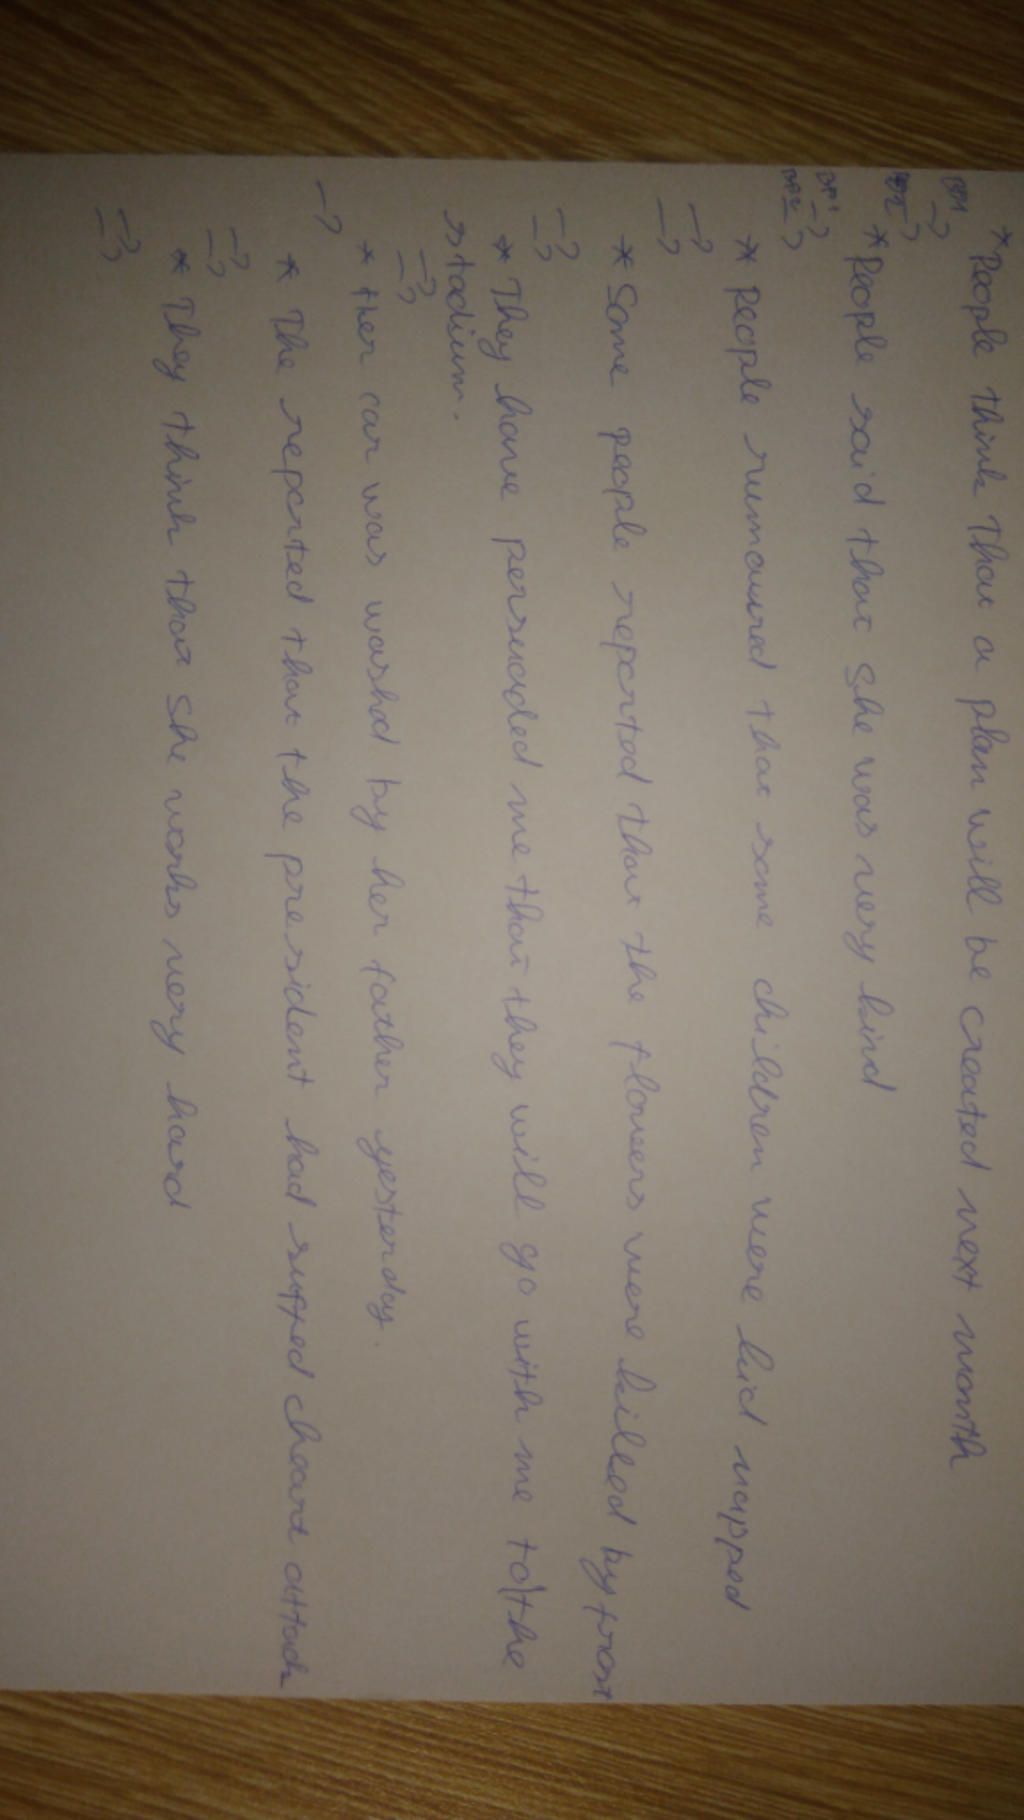 * People think that a plan will be created next month
* People said that she was very kind
* People rumoured that some children were kid napped
* Some people reported that the flowers were killed by frost
* They have persuaded me that they will go with me to the
stadium.
* Her car was washed by her father yesterday.
* The reported that the president had
* They think that she works very hard